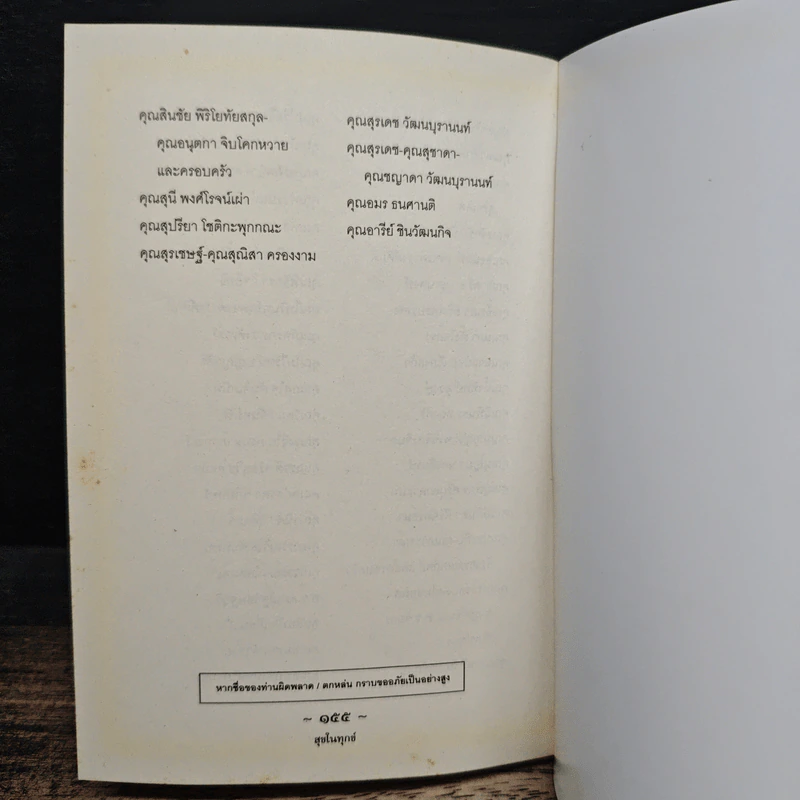 คุณสินชัย พิริโยทัยสกุล-
คุณอนุตกา จิบโคกหวาย
และครอบครัว
คุณสุนี พงศ์โรจน์เผ่า
คุณสุปรียา โชติกะพุกกณะ
คุณสุรเชษฐ์-คุณสุณิสา ครองงาม
คุณสุรเดช วัฒนบุรานนท์
คุณสุรเดช-คุณสุชาดา-
คุณชญาดา วัฒนบุรานนท์
คุณอมร ธนศานติ
คุณอารีย์ ชินวัฒนกิจ
หากชื่อของท่านผิดพลาด / ตกหล่น กราบขออภัยเป็นอย่างสูง
~ ๑๕๕ ~
สุขในทุกข์